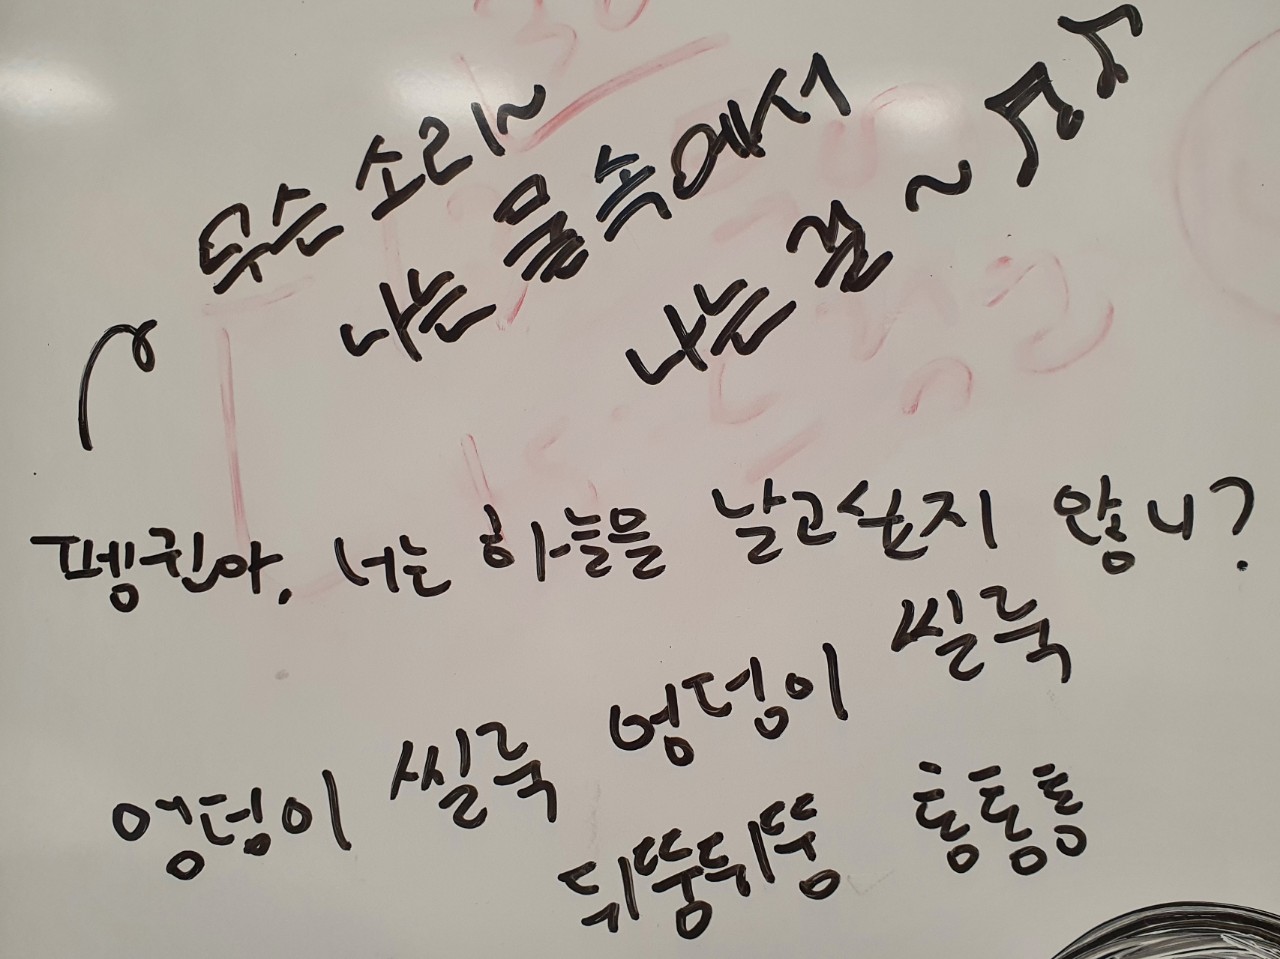 무슨 소리~
나는 물 속에서
나는 걸~
펭귄아, 너는 하늘을 날고싶지 않니?
엉덩이 씰룩 엉덩이 씰룩
뒤뚱뒤뚱 총총총